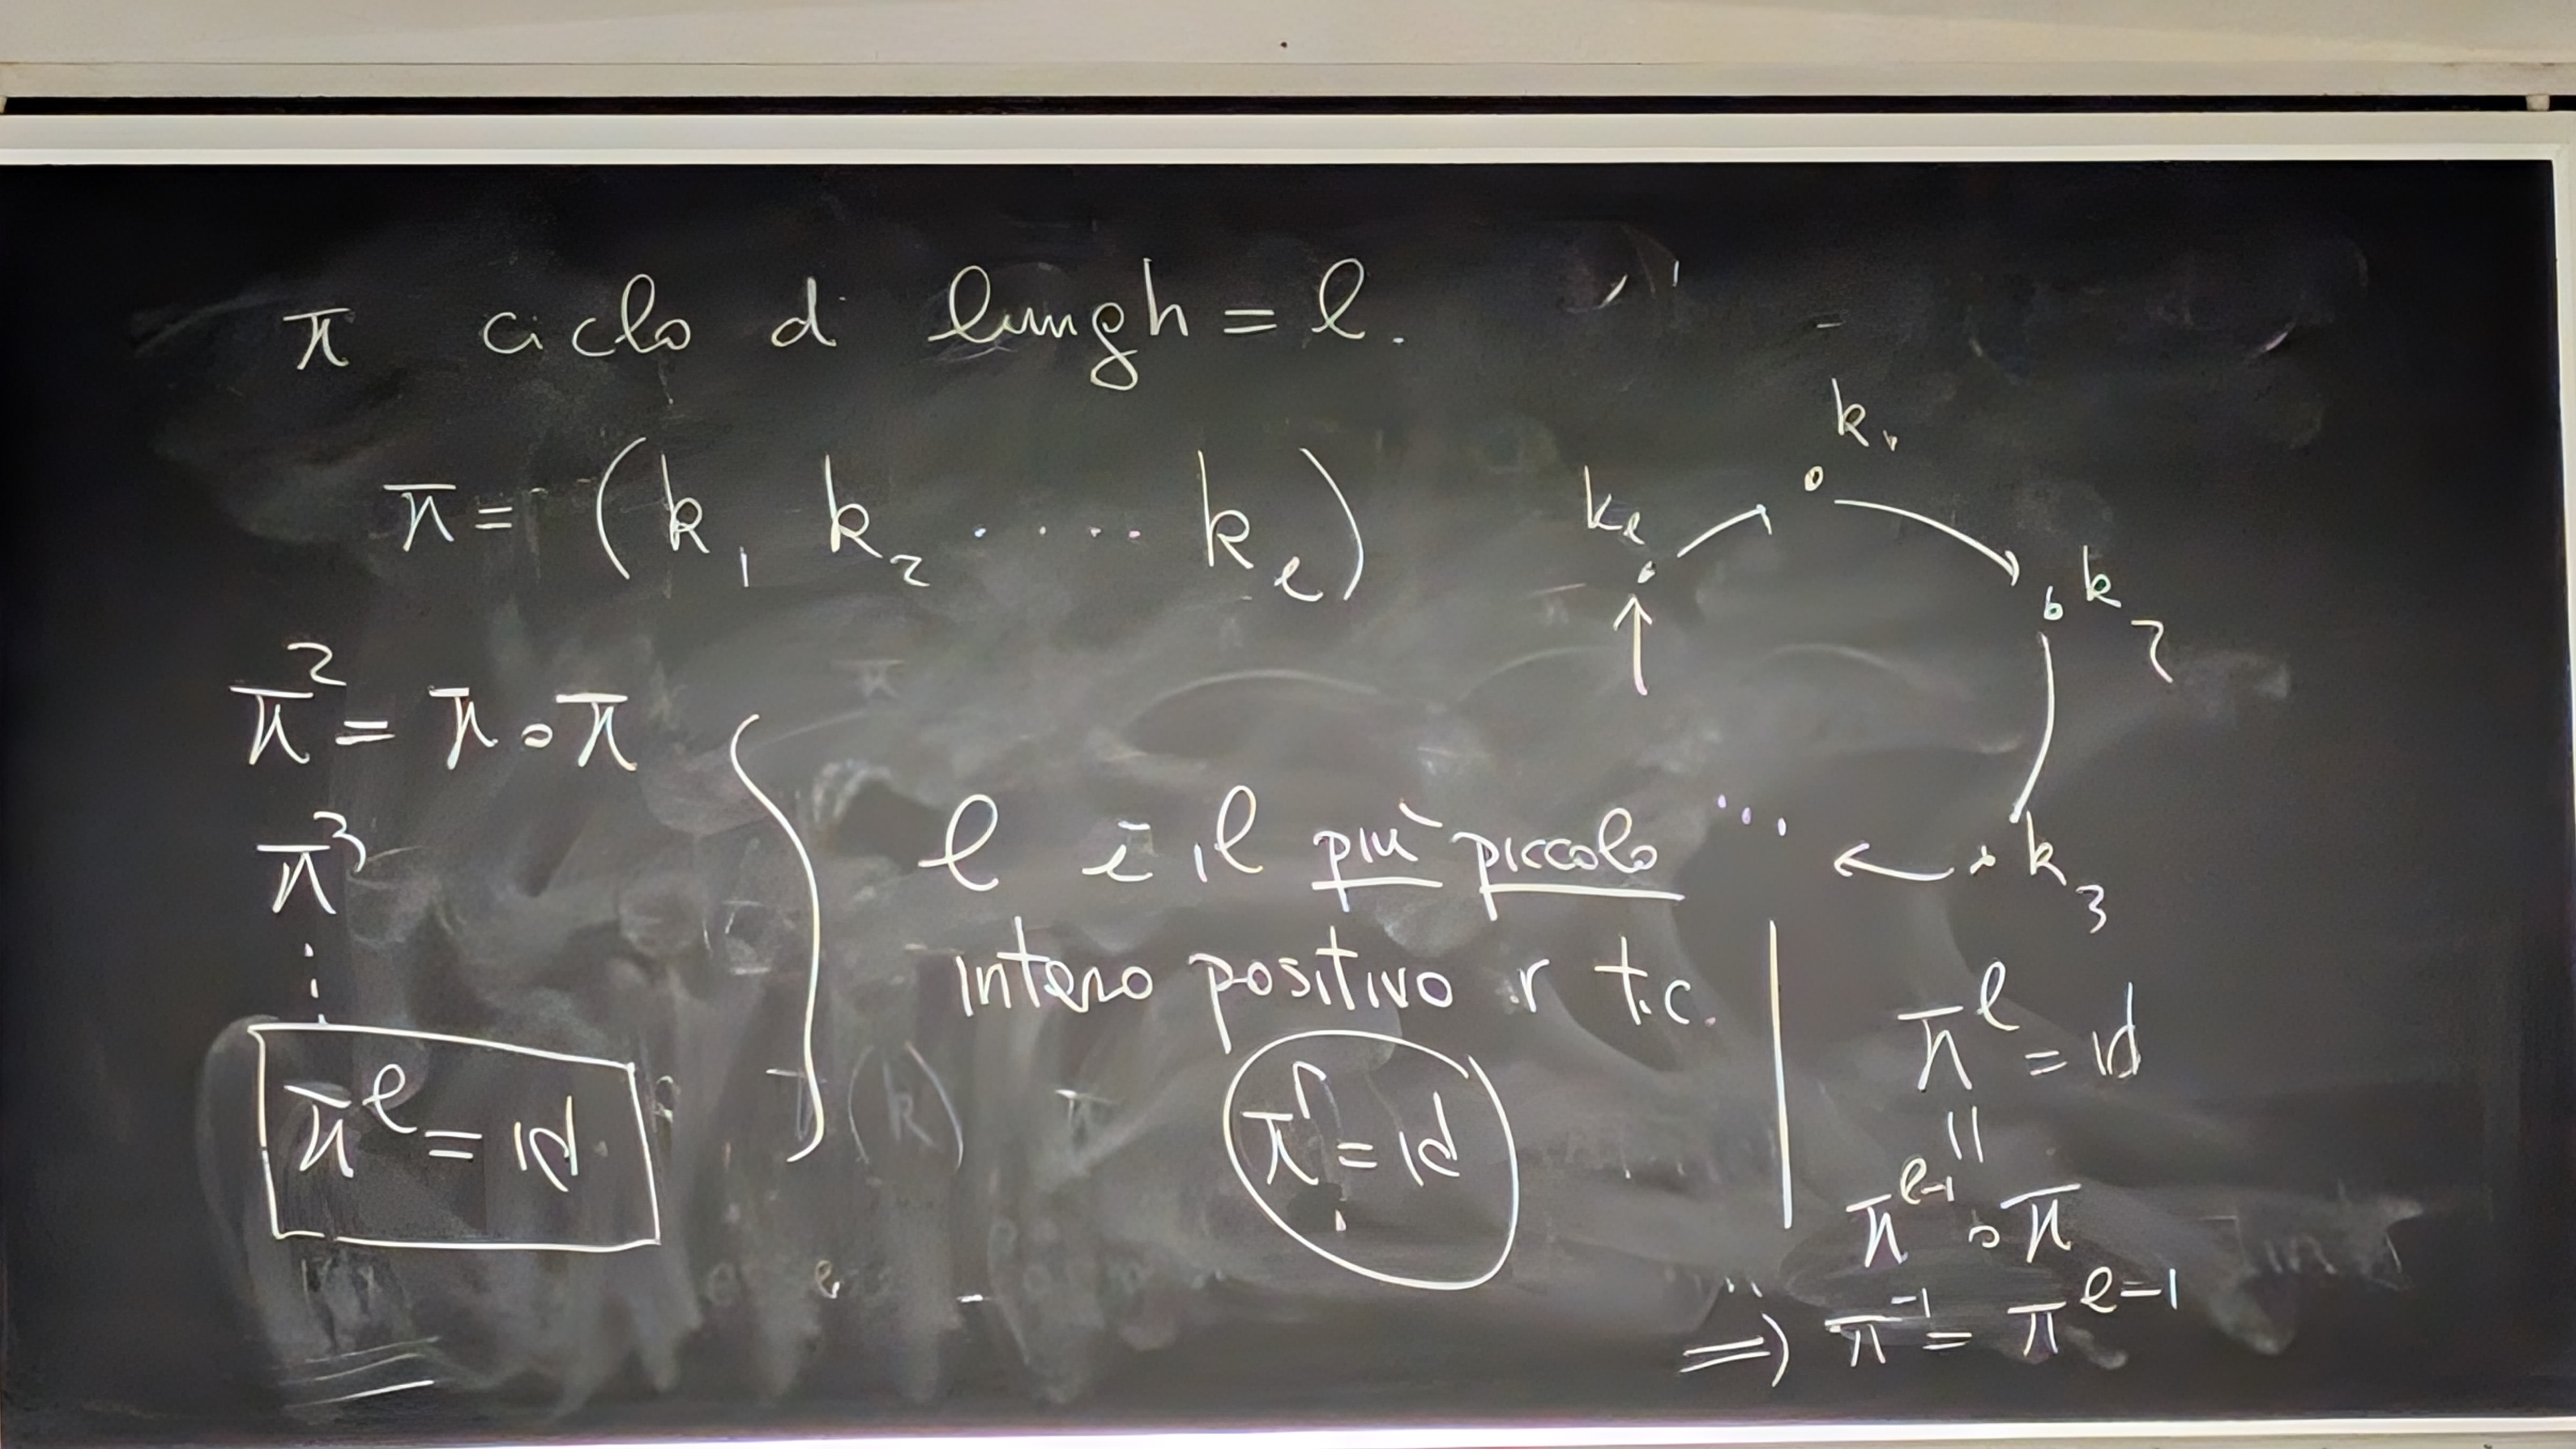 π ciclo d lungh = l.
π = (k₁ k₂ ..... kₗ)
k₁
kₗ
k₂
k₃
π² = π ∘ π
π³
⋮
πˡ = id
l è il più piccolo
intero positivo r t.c.
πʳ = id
πˡ = id
||
πˡ⁻¹ ∘ π
⇒ π⁻¹ = πˡ⁻¹